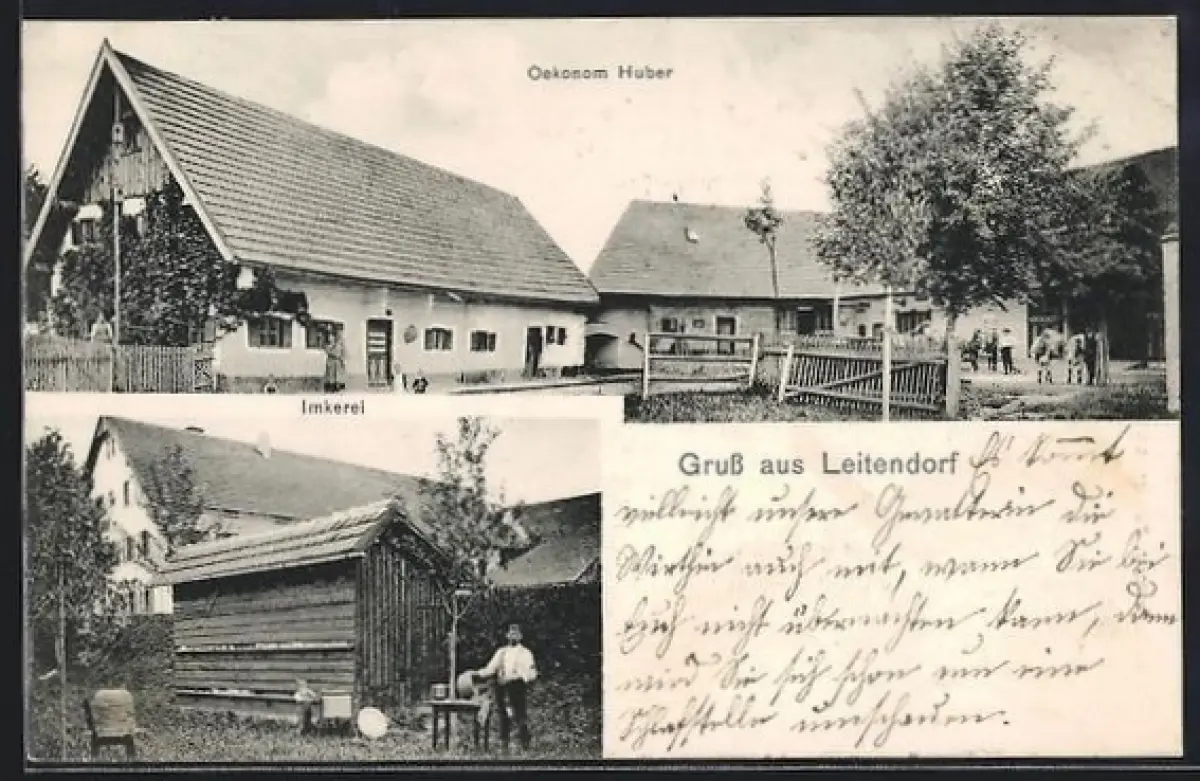 Oekonom Huber
Imkerei
Gruß aus Leitendorf
Es kommt
vielleicht unsere die
Wirthin auch mit, wann Sie bei
Euch nicht übernachten kann, dann
wird Sie sich schon um eine
Schlafstelle umschauen.